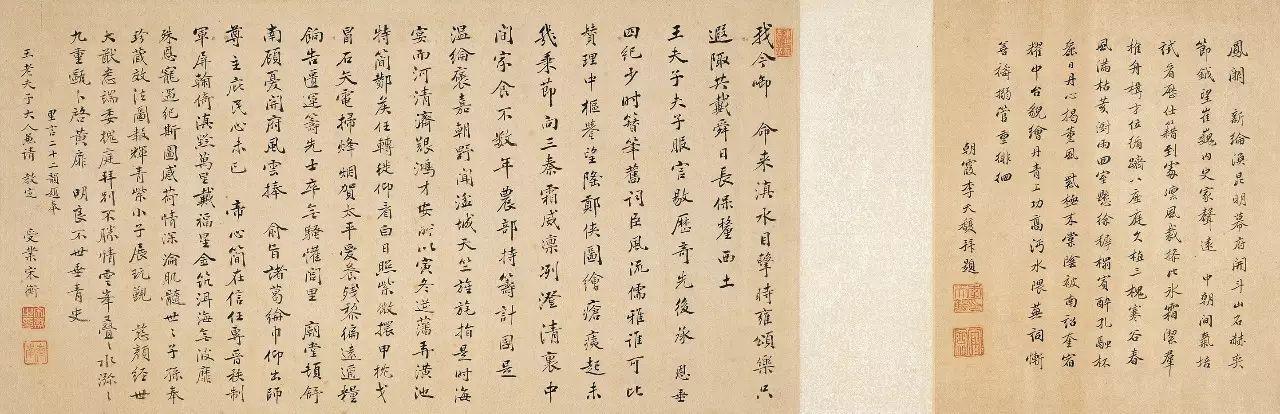 鳳闕　新綸渙昆明幕府開斗山石赫奕
節鉞望崔巍內史家聲遠　中朝間氣培
試看應仕籍到處凜風裁操比冰霜潔羣
推舟楫才位循躋八座庭久植三槐寒谷春
風滿枯荄澍雨回室懸徐穉榻賓醉孔融杯
葵日丹心揭薰風　極來棠陰被南詔奎宿
耀中台貌繪丹青上功高河水隈蕪詞慚
搦管重徘徊
朝霞李天馥拜題
我今啣　命來滇水目擊時雍頌樂只
遐陬共戴舜日長保釐西土
王夫子夫子服官敭歷奇先後承　恩垂
四紀少時簪筆舊詞臣風流儒雅誰可比
贊理中樞譽望隆鄭俠圖繪瘡痍起未
幾乘節向三秦霜威凜冽澄清裏中
間家食不數年農部持籌計國是
溫綸褒嘉朝野聞滏城天竺旌旄指是時海
宴而河清濟艱鴻才安所以寅冬逆藩弄潢池
特簡鄭矦任轉徙仰看白日照紫微擐甲枕戈
冒石矢電掃烽烟賀太平爰養殘黎徧遠邇糧
餉告匱運籌先士卒無騷懽閭里　廟堂頓舒
南顧憂開府風雲捧　俞旨諸葛綸巾仰出師
尊主庇民心未已　帝心簡在信任專晉秩制
軍屏翰倚滇黔萬里戴福星金筑洱海無波靡
殊恩寵遇紀斯圖感荷情深淪肌髓世〻子孫奉
珍藏敬法圖報輝青紫小子展玩覲　慈顏經世
大猷悉端委槐庭拜別不勝情雲峯疊〻水瀰〻
九重甌卜啓黃扉　明良不世垂青史
里言二十二韻題奉
王老夫子大人兼請　教定
受業宋衡